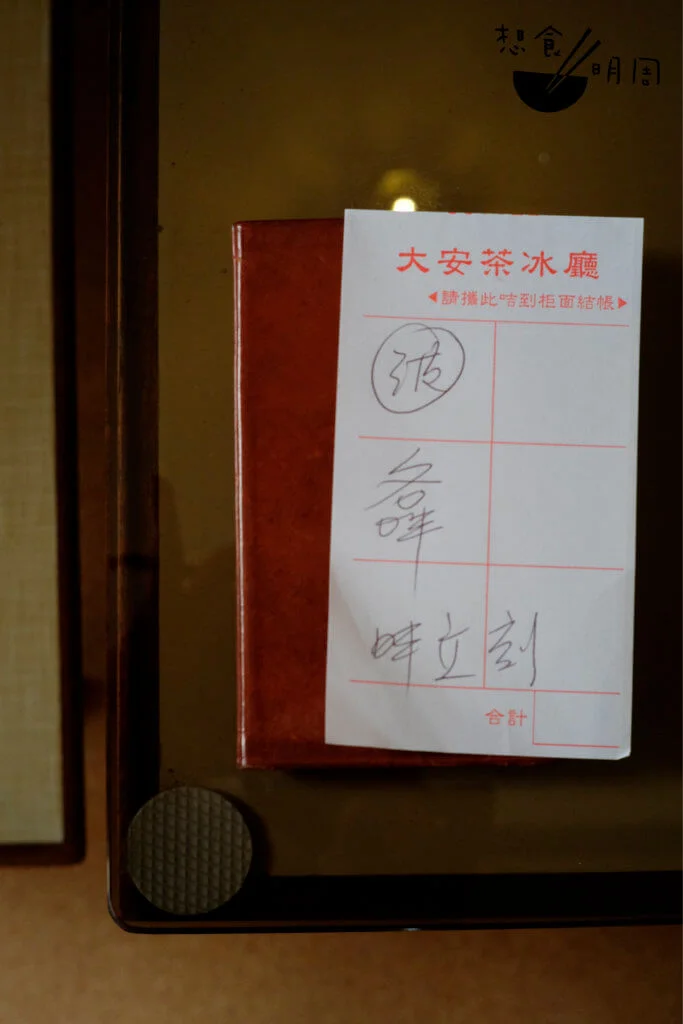 想食
明周
大安茶冰廳
◀請攜此咭到柜面結帳▶
立刻
合計